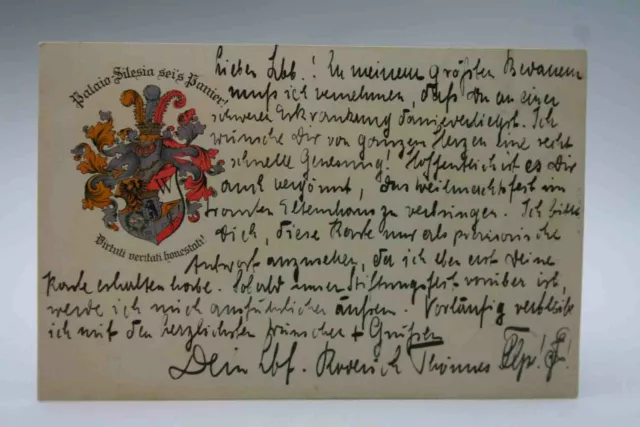 Palaio-Silesia sei's Panier!
Virtuti veritati honestati!
Lieber Lbb.! Zu meinem größten Bedauern
muß ich vernehmen, daß Du an einer
schweren Erkrankung darniederliegst. Ich
wünsche Dir von ganzem Herzen eine recht
schnelle Genesung! Hoffentlich ist es Dir
auch vergönnt, das Weihnachtsfest im
trauten Elternhaus zu verbringen. Ich bitte
Dich, diese Karte nur als provisorische
Antwort anzusehen, da ich eben erst Deine
Karte erhalten habe. Sobald unser Stiftungsfest vorüber ist,
werde ich mich ausführlicher äußern. Vorläufig verbleibe
ich mit den herzlichsten Wünschen + Grüßen
Dein Lbf. Roderich Thönnes